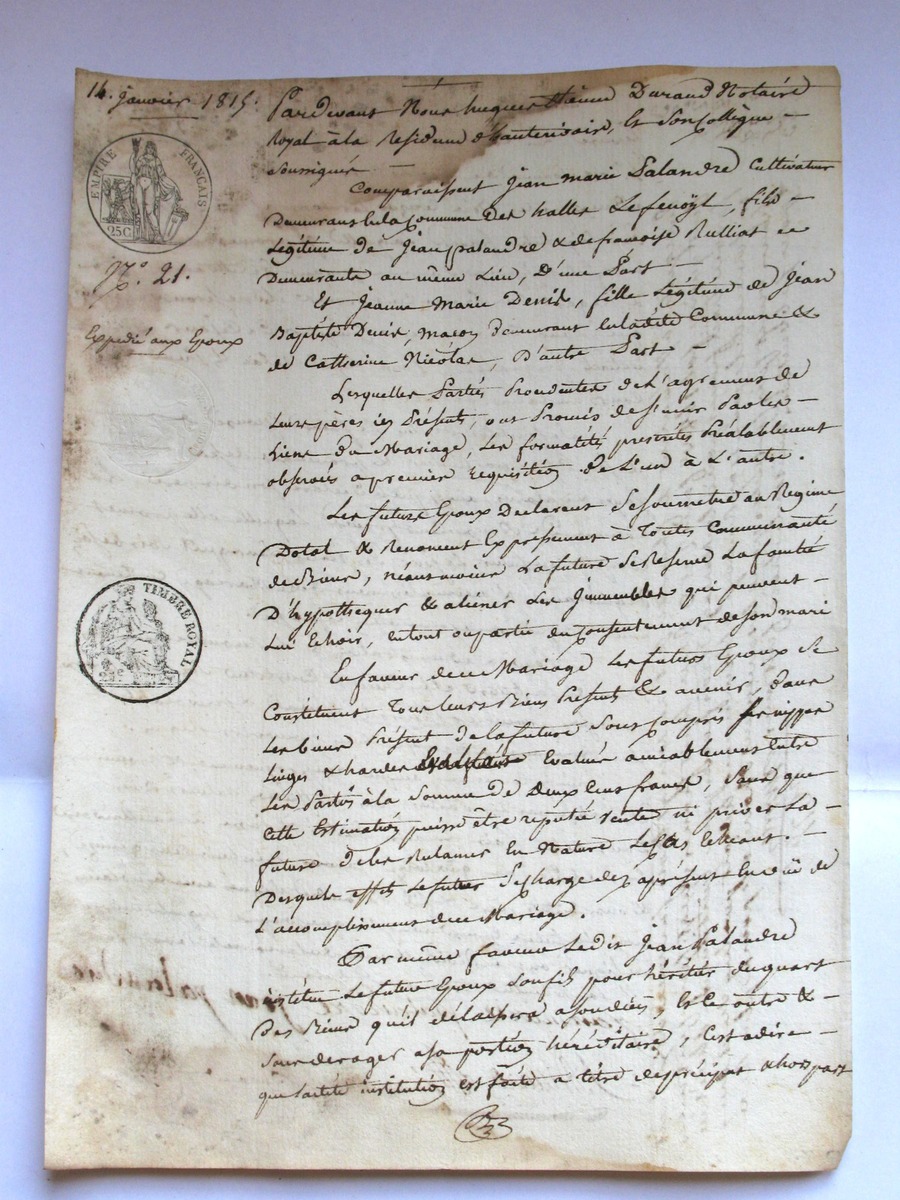 14. janvier 1815.
EMPIRE FRANÇAIS
25C
N.° 21.
Expedié aux Epoux
TIMBRE ROYAL
Pardevant Nous hugues Etienne Durand Notaire
Royal à la Residence d'hauterivoire, et son Collègue –
Soussignés
Comparaissent Jean marie Palandre Cultivateur
Demeurans en la Commune des halles Lefenöyl, fils –
Legitime de Jean palandre & de françoise Rulliat
Demeurants au même Lieu, D'une Part –
Et Jeanne Marie Denis, fille Legitime de Jean
Baptiste Denis, maçon demeurant en ladite Commune &
de Catherine Nicolas, D'autre Part –
Lesquelles Parties Procedentes de L'agrement de
Leurs pères icy Présents, ont Promis de s'unir Par les –
Liens du Mariage, les formalités prescrites Préalablement
observés a premier requisition de L'un à L'autre.
Les futurs Epoux Declarent se soumettre au Regime
Dotal & Renoncent Expressement à Toutes Communauté
de Biens, néanmoins La future se Reserve La faculté
D'hypothequer & aliéner Les Immeubles qui peuvent –
Lui Echoir, en tout ou partie du Consentement de son mari
En faveur de ce Mariage Les futurs Epoux se
Constituent Tous leurs Biens Présents & avenir, dans
Les biens Présent de la future sous compris ses nippes
Linges & hardes Evalués amiablement Entre
Les Partis à la Somme de Deux Cens francs, sans que
Cette Estimation puisse être reputée vente ni priver La –
future de les Reclamer En Nature le cas Echéant. –
Desquels effets Le futur se Charge dez apresent En vuë de
L'accomplissement de ce Mariage.
Par même faveur Ledit Jean Palandre
institue Le futur Epoux son fils pour héritier du quart
Des Biens qu'il délaissera a son décès, Et ce outre & –
sans deroger a sa portion héréditaire, C'est adire –
que ladite institution est faite a titre de préciput & hors part